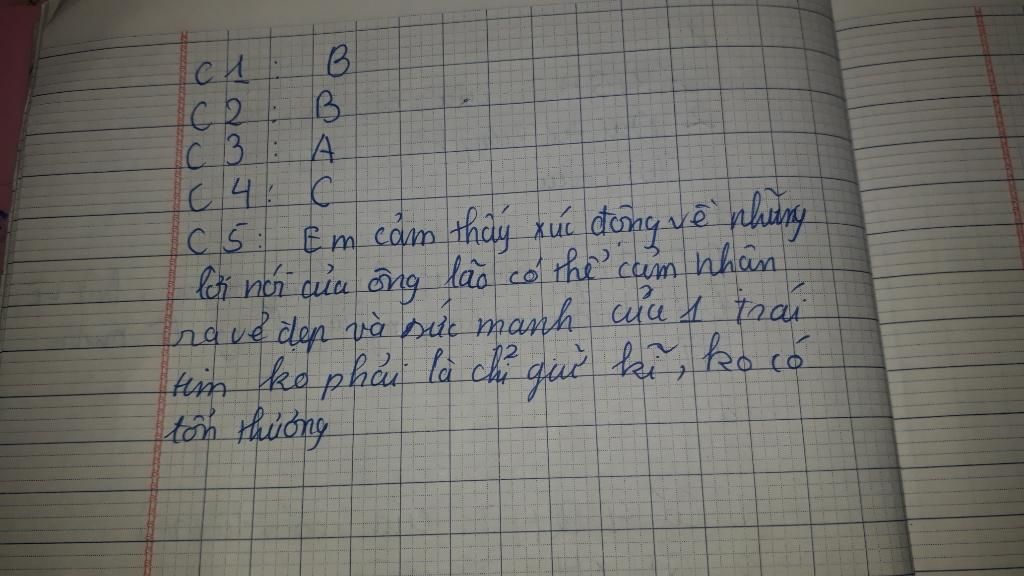 C 1 : B
C 2 : B
C 3 : A
C 4 : C
C 5 : Em cảm thấy xúc động về những
lời nói của ông lão có thể cảm nhân
ra vẻ đẹp và sức manh của 1 trái
tim ko phải là chỉ giữ kĩ, ko có
tổn thương